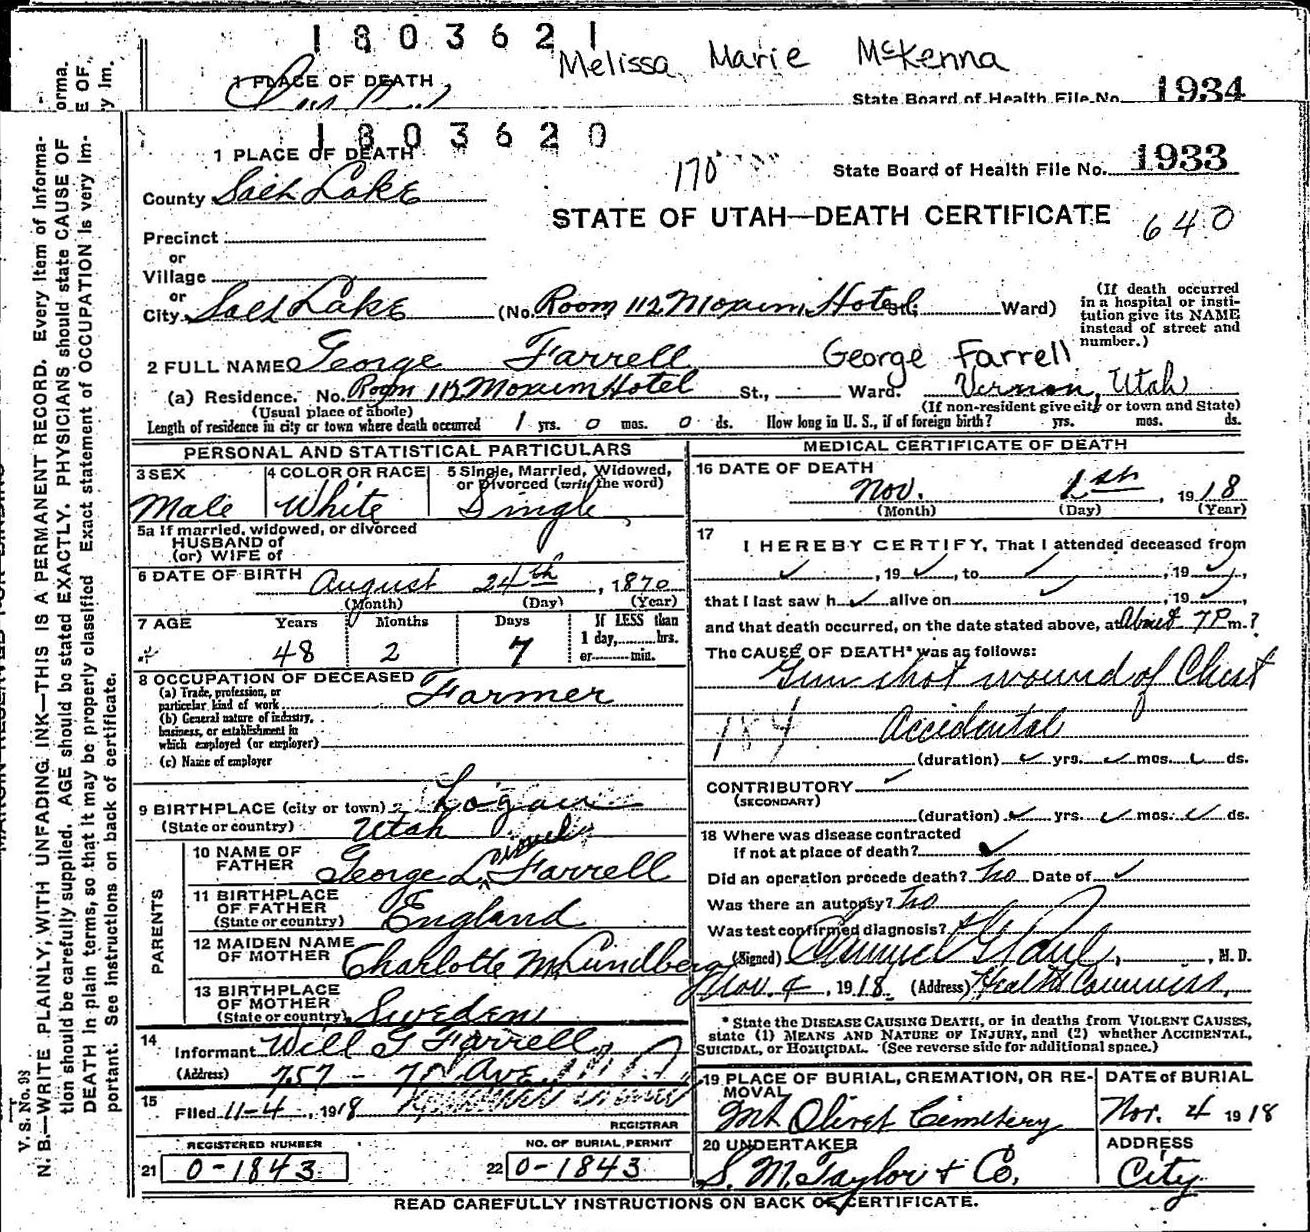 1803621
Melissa Marie McKenna
1 PLACE OF DEATH
State Board of Health File No. 1934
1803620
1 PLACE OF DEATH
170
State Board of Health File No. 1933
County Salt Lake
STATE OF UTAH—DEATH CERTIFICATE
640
Precinct
or
Village
or
City Salt Lake (No. Room 112 Moxum Hotel St. Ward)
(If death occurred in a hospital or institution give its NAME instead of street and number.)
2 FULL NAME George Farrell George Farrell
(a) Residence. No. Room 112 Moxum Hotel St., Ward. Vernon, Utah
(Usual place of abode) (If non-resident give city or town and State)
Length of residence in city or town where death occurred 1 yrs. 0 mos. 0 ds. How long in U. S., if of foreign birth? yrs. mos. ds.
PERSONAL AND STATISTICAL PARTICULARS
3 SEX Male
4 COLOR OR RACE White
5 Single, Married, Widowed, or Divorced (write the word) Single
5a If married, widowed, or divorced
HUSBAND of
(or) WIFE of
6 DATE OF BIRTH August 24th, 1870
(Month) (Day) (Year)
7 AGE Years Months Days If LESS than
48 2 7 1 day, hrs.
or min.
8 OCCUPATION OF DECEASED
(a) Trade, profession, or particular kind of work Farmer
(b) General nature of industry, business, or establishment in which employed (or employer)
(c) Name of employer
9 BIRTHPLACE (city or town) Logan
(State or country) Utah
PARENTS
10 NAME OF FATHER George L. Farrell
11 BIRTHPLACE OF FATHER (State or country) England
12 MAIDEN NAME OF MOTHER Charlotte M. Lundberg
13 BIRTHPLACE OF MOTHER (State or country) Sweden
14 Informant Will G Farrell
(Address) 757 - 7th Ave
15 Filed 11-4, 1918
REGISTRAR
REGISTERED NUMBER
21 0-1843
NO. OF BURIAL PERMIT
22 0-1843
MEDICAL CERTIFICATE OF DEATH
16 DATE OF DEATH
Nov. 1st, 1918
(Month) (Day) (Year)
17
I HEREBY CERTIFY, That I attended deceased from
, 19 , to , 19 ,
that I last saw h alive on , 19 ,
and that death occurred, on the date stated above, at About 7 P m.?
The CAUSE OF DEATH* was as follows:
Gun shot wound of Chest
184 Accidental
(duration) yrs. mos. ds.
CONTRIBUTORY
(SECONDARY)
(duration) yrs. mos. ds.
18 Where was disease contracted
If not at place of death?
Did an operation precede death? No Date of
Was there an autopsy? No
Was test confirmed diagnosis?
(Signed) Samuel G Paul, M. D.
Nov. 4, 1918 (Address) Health Commiss.
* State the DISEASE CAUSING DEATH, or in deaths from VIOLENT CAUSES,
state (1) MEANS AND NATURE OF INJURY, and (2) whether ACCIDENTAL,
SUICIDAL, or HOMICIDAL. (See reverse side for additional space.)
19 PLACE OF BURIAL, CREMATION, OR REMOVAL
Mt Olivet Cemetery
DATE of BURIAL
Nor. 4 1918
20 UNDERTAKER
S. M. Taylor & Co.
ADDRESS
City
READ CAREFULLY INSTRUCTIONS ON BACK OF CERTIFICATE.
V. S. No. 98
N. B.—WRITE PLAINLY, WITH UNFADING INK—THIS IS A PERMANENT RECORD. Every item of Informa-
tion should be carefully supplied. AGE should be stated EXACTLY. PHYSICIANS should state CAUSE OF
DEATH in plain terms, so that it may be properly classified. Exact statement of OCCUPATION is very im-
portant. See instructions on back of certificate.